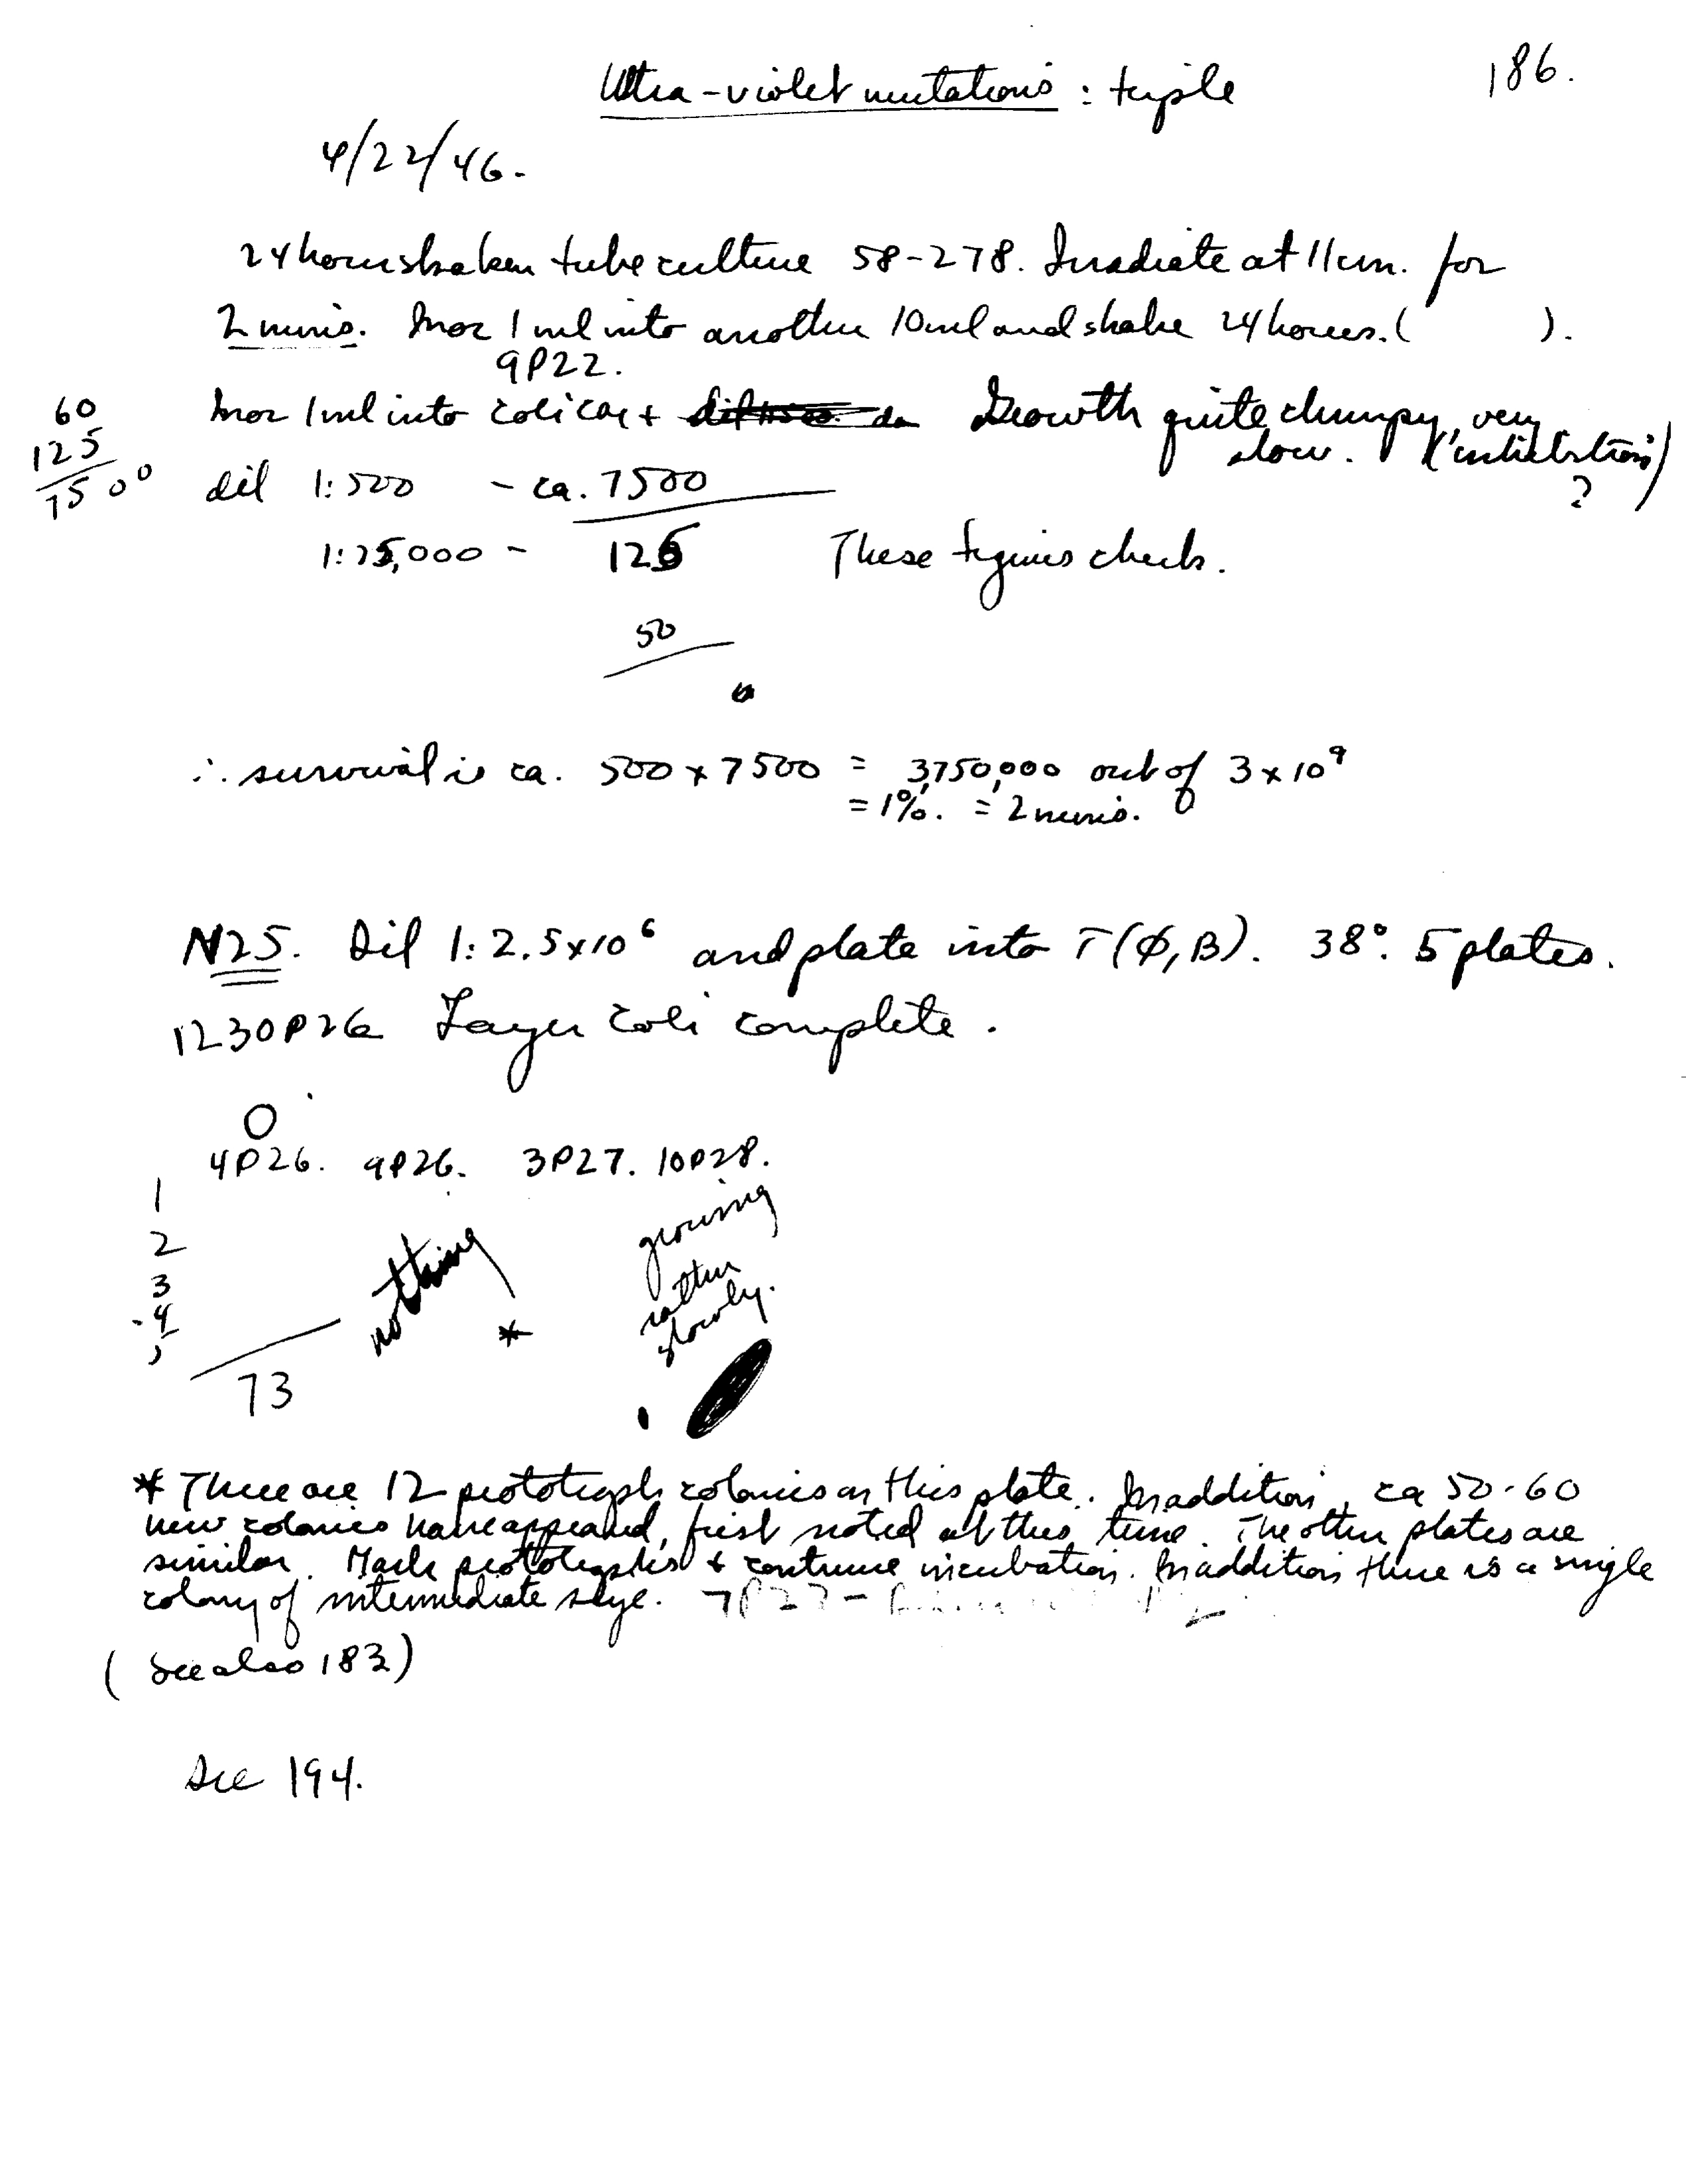 Ultra-violet mutations : triple
186.
4/22/46.
24 hour shaken tube culture 58-278. Irradiate at 11 cm. for
2 mins. Inoc 1 ml into another 10 ml and shake 24 hours. ( ).
9P22.
Inoc 1 ml into coli car + Growth quite clumpy, very
slow. (inhibition)
?
60
125
7500
dil 1:500 - ca. 7500
1:25,000 - 126 These figures check.
50
∴ survival is ca. 500 x 7500 = 3,750,000 out of 3 x 10⁹
= 1%. = 2 mins.
N25. Dil 1: 2.5 x 10⁶ and plate into T(φ, B). 38°. 5 plates.
1230P26 Layer coli complete.
0
4P26. 9P26. 3P27. 10P28.
1
2
3
4
73
nothing
*
growing
rather
slowly.
* There are 12 prototroph colonies on this plate. In addition, ca 50-60
new colonies have appeared, first noted at this time. The other plates are
similar. Mark prototrophs + continue incubation. In addition there is a single
colony of intermediate size. 7P27 -
(See also 183)
See 194.